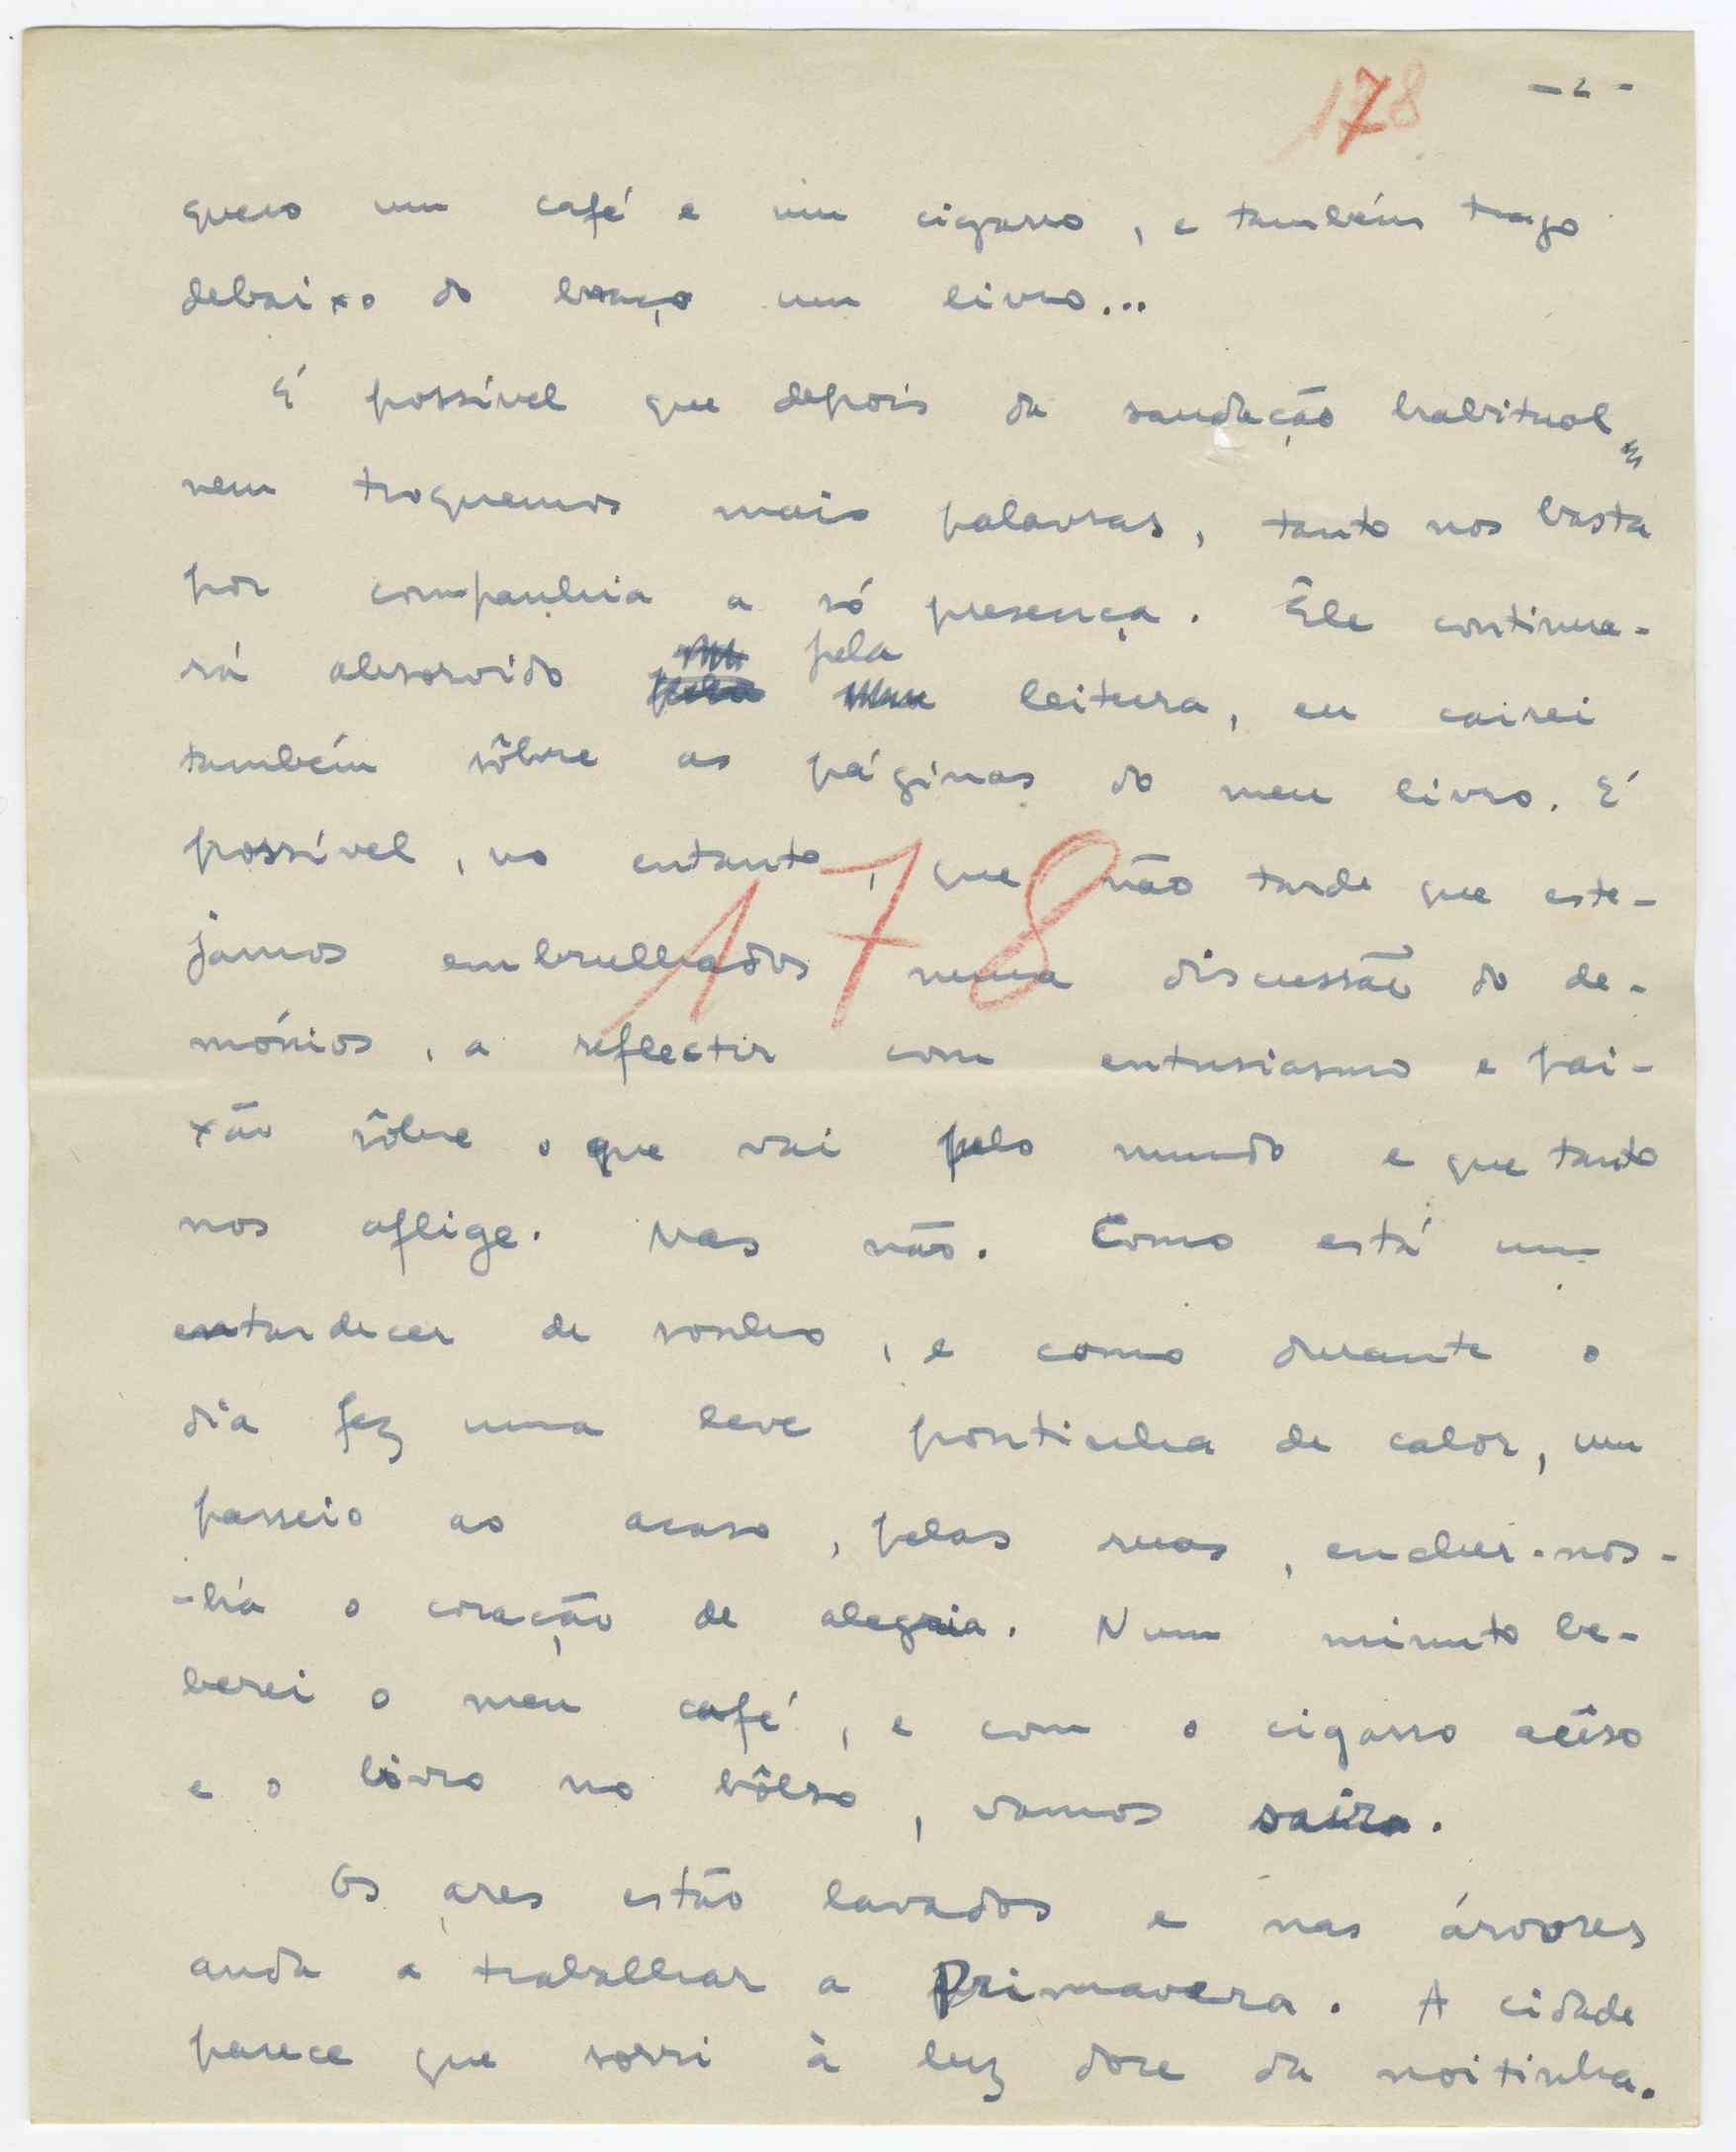 178 - 2 -
quero um café e um cigarro, e também trago
debaixo do braço um livro...
É possível que depois da saudação habitual
nem troquemos mais palavras, tanto nos basta
por companhia a só presença. Êle continua-
pela
rá absorvido leitura, eu cairei
também sôbre as páginas do meu livro. É
possível, no entanto, que não tarde que este-
178
jamos embrulhados numa discussão do de-
mónios, a reflectir com entusiasmo e pai-
xão sôbre o que vai pelo mundo e que tanto
nos aflige. Mas não. Como está um
entardecer de sonho, e como durante o
dia fez uma leve pontinha de calor, um
passeio ao acaso, pelas ruas, encher-nos-
-há o coração de alegria. Num minuto be-
berei o meu café, e com o cigarro acêso
e o livro no bôlso, vamos sair.
Os ares estão lavados e nas árvores
anda a trabalhar a Primavera. A cidade
parece que sorri à luz doce da noitinha.